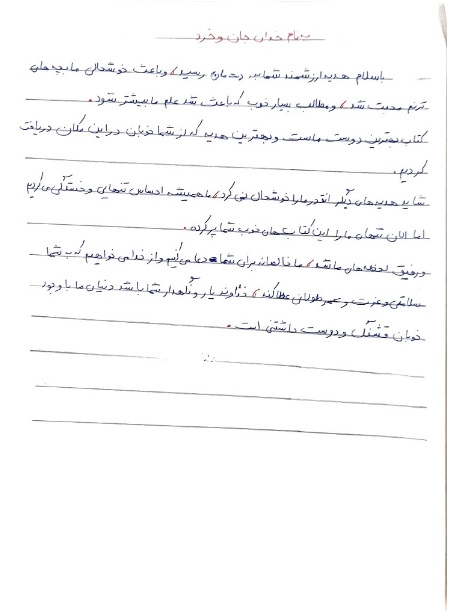 بنام خدای جان و خرد
باسلام هدیه ارزشمند شما به دست مان رسید، و باعث خوشحالی ما بچه های
ترنم محبت شد، و مطالب بسیار خوب که باعث شد علم ما بیشتر شود.
کتاب بهترین دوست ماست و بهترین هدیه که از شما خوبان در این مکان دریافت
کردیم.
شاید هدیه های دیگر انقدر ما را خوشحال نمی کرد، ما همیشه احساس تنهایی و خستگی می کردیم
اما الان تنهای ما را این کتاب های خوب شما پر کرده.
و رفیق لحظه های ما شد، ما خالصانه برای شما دعا می کنیم و از خدا می خواهیم که به شما
سلامتی و عزت و عمر طولانی عطا کند، خداوند یار و نگاهدار شما باشد دنیای ما با وجود
خوبان قشنگ و دوست داشتنی است.